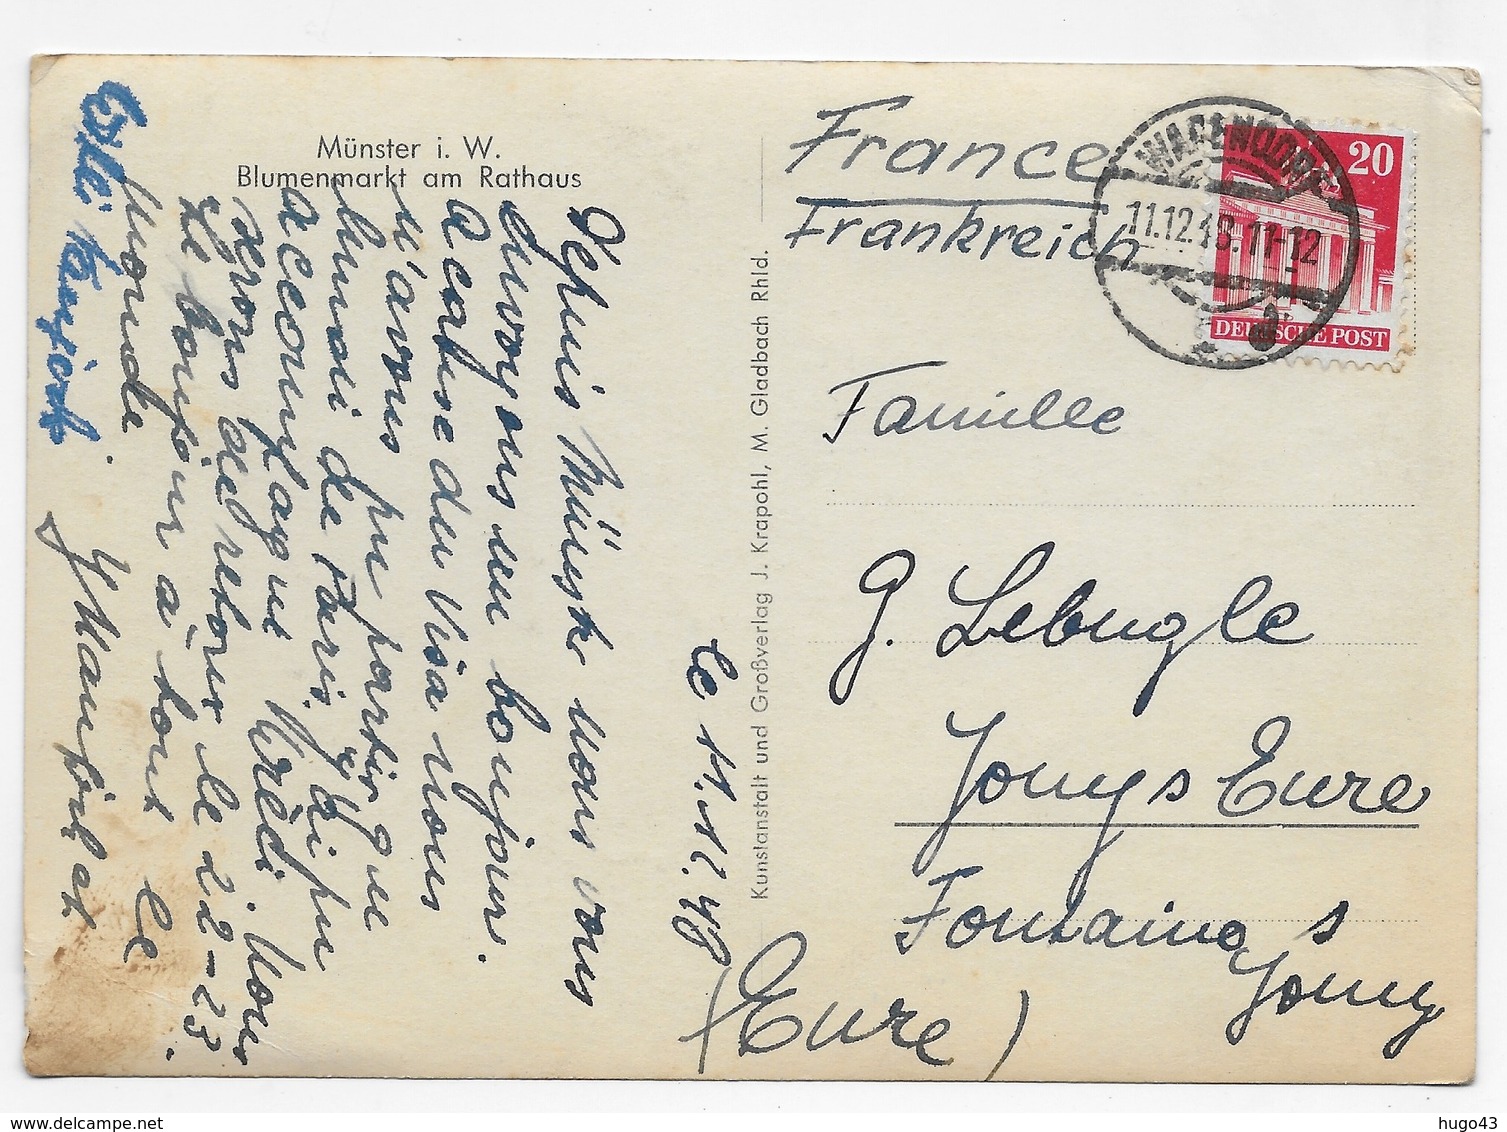 Münster i. W.
Blumenmarkt am Rathaus
Depuis Münster nous vous
envoyons un bonjour.
A cause du Visa nous
n'avons pu partir que
lundi de Paris, j'ai pu
accompagner Frédi. Nous
serons de retour le 22-23.
Le bonjour à tout le
monde
le 11.12.48
Kunstanstalt und Großverlag J. Krapohl, M. Gladbach Rhld.
France
Frankreich
WAGENDORF
11.12.48.11-12
a
20
DEUTSCHE POST
Famille
G. Lebugle
Jouy s Eure
Fontaine s
Jouy
(Eure)
hugo43